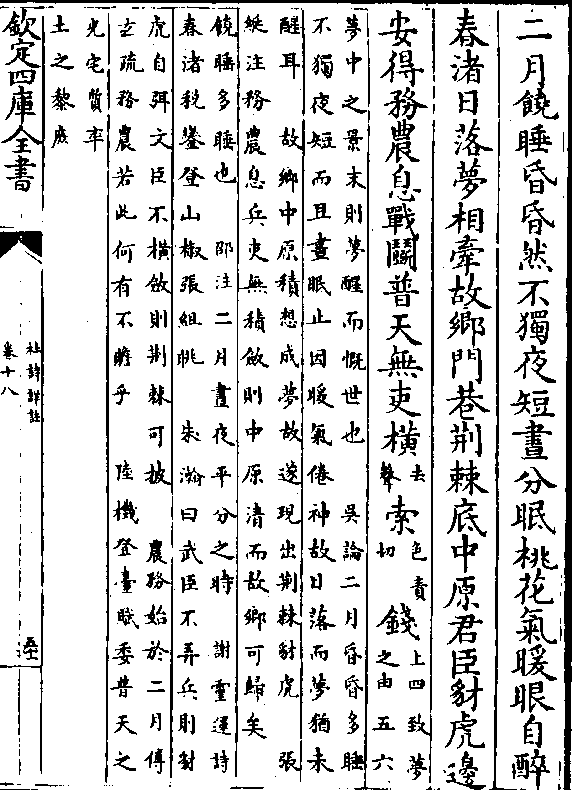 二月饒睡昏昏然不獨夜短晝分眠桃花氣暖眼自醉
春渚日落夢相牽故鄉門巷荆棘底中原君臣豺虎邊
安得務農息戰鬬普天無吏橫去聲索色責切錢上四致夢之由五六
夢中之景末則夢醒而慨世也 吳論二月昏昏多睡
不獨夜短而且晝眠止因暖氣倦神故日落而夢猶未
醒耳 故鄉中原積想成夢故遂現出荆棘豺虎 張
綖注務農息兵吏無積斂則中原清而故鄉可歸矣
饒睡多睡也 邵注二月晝夜平分之時 謝靈運詩
春渚稅鑾登山椒張組眺 朱瀚曰武臣不弄兵則豺
虎自弭文臣不橫斂則荆棘可披 農務始於二月傅
玄疏務農若此何有不贍乎 陸機登臺賦委普天之
光宅質率
土之黎庶
欽定四庫全書
杜詩詳註
卷十八